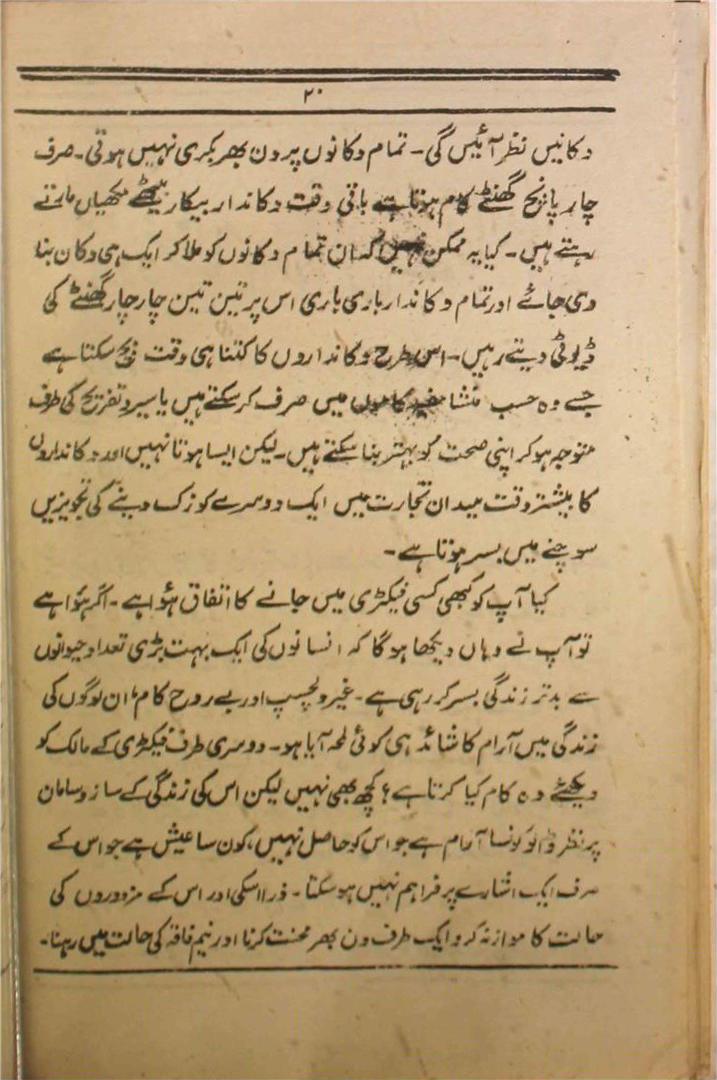 ۲۰
دکانیں نظر آئیں گی۔ تمام دکانوں پر دن بھر بکری نہیں ہوتی۔ صرف
چار پانچ گھنٹے کام ہوتا ہے باقی وقت دکاندار بیکار بیٹھے مکھیاں مارتے
رہتے ہیں۔ کیا یہ ممکن نہیں کہ ان تمام دکانوں کو ملا کر ایک ہی دکان بنا
دی جائے اور تمام دکاندار باری باری اس پر تین تین چار چار گھنٹے کی
ڈیوٹی دیتے رہیں۔ اس طرح دکانداروں کا کتنا ہی وقت بچ سکتا ہے
جسے وہ حسب منشا مفید کاموں میں صرف کر سکتے ہیں یا سیر و تفریح کی طرف
متوجہ ہو کر اپنی صحت کو بہتر بنا سکتے ہیں۔ لیکن ایسا ہوتا نہیں اور دکانداروں
کا بیشتر وقت میدان تجارت میں ایک دوسرے کو زک دینے کی تجویزیں
سوچنے میں بسر ہوتا ہے۔
کیا آپ کو کبھی کسی فیکٹری میں جانے کا اتفاق ہؤا ہے۔ اگر ہؤا ہے
تو آپ نے وہاں دیکھا ہو گا کہ انسانوں کی ایک بہت بڑی تعداد حیوانوں
سے بدتر زندگی بسر کر رہی ہے۔ غیر دلچسپ اور بے روح کام، ان لوگوں کی
زندگی میں آرام کا شائد ہی کوئی لمحہ آیا ہو۔ دوسری طرف فیکٹری کے مالک کو
دیکھئے وہ کام کیا کرتا ہے؟ کچھ بھی نہیں لیکن اس کی زندگی کے ساز و سامان
پر نظر ڈالو کونسا آرام ہے جو اس کو حاصل نہیں، کون سا عیش ہے جو اس کے
صرف ایک اشارے پر فراہم نہیں ہو سکتا۔ ذرا اسکی اور اس کے مزدوروں کی
حالت کا موازنہ کرو ایک طرف دن بھر محنت کرنا اور نیم فاقہ کی حالت میں رہنا۔